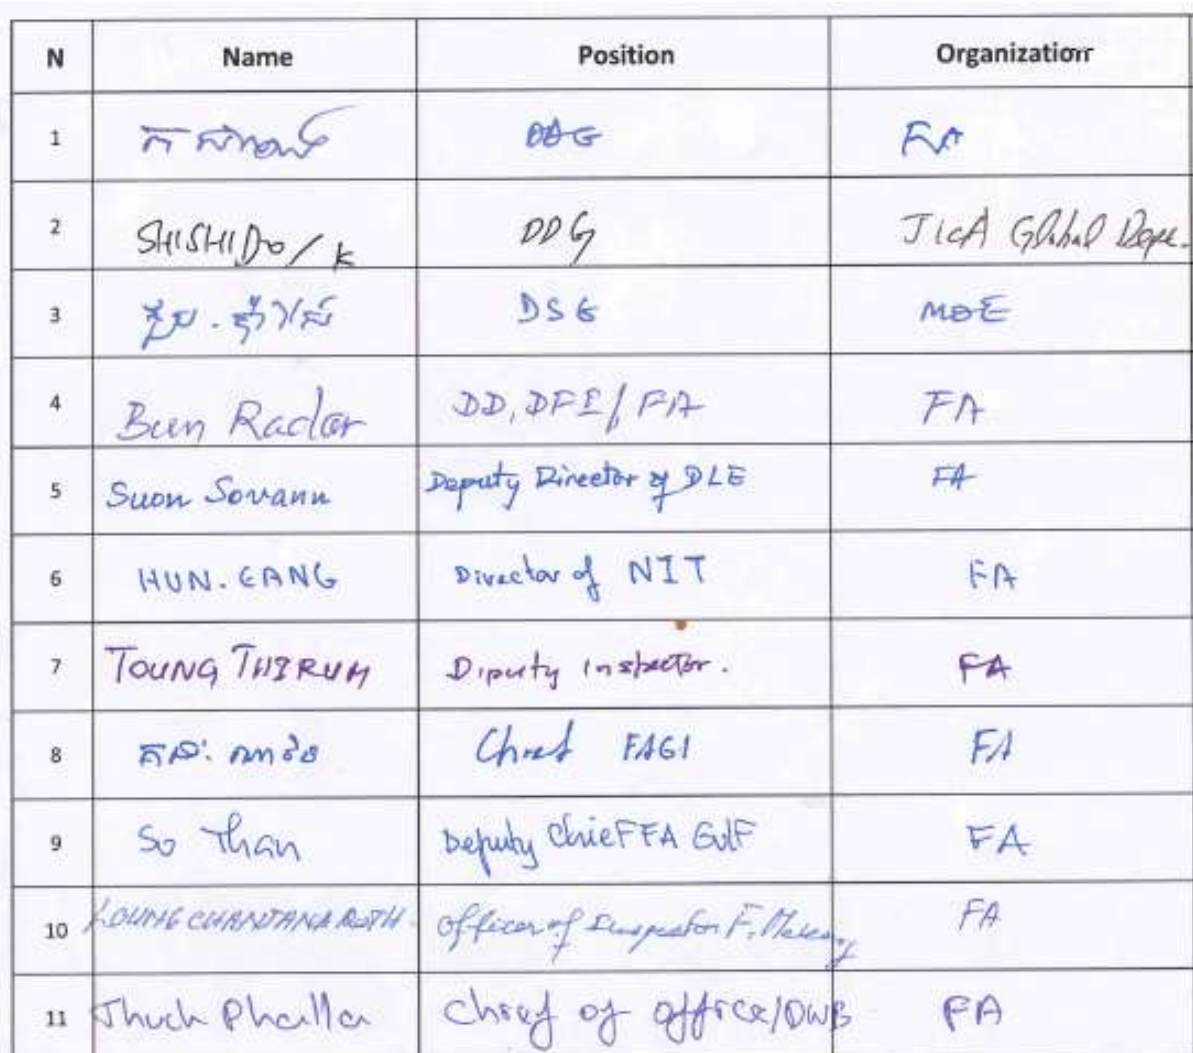 N Name Position Organization
1 FA
2 SHISHIDO / K DDG JICA Global Dept.
3 DSG MOE
4 Bun Radar DD, DFE/FA FA
5 Suon Sovann Deputy Director of DLE FA
6 HUN. EANG Director of NIT FA
7 TOUNG THIRUM Diputy Inspector. FA
8 Chief FAGI FA
9 So Than Deputy Chief FA Gulf FA
10 CHANDANA ROTH. officer of FA
11 Thuch Phalla Chief of office/DWB FA